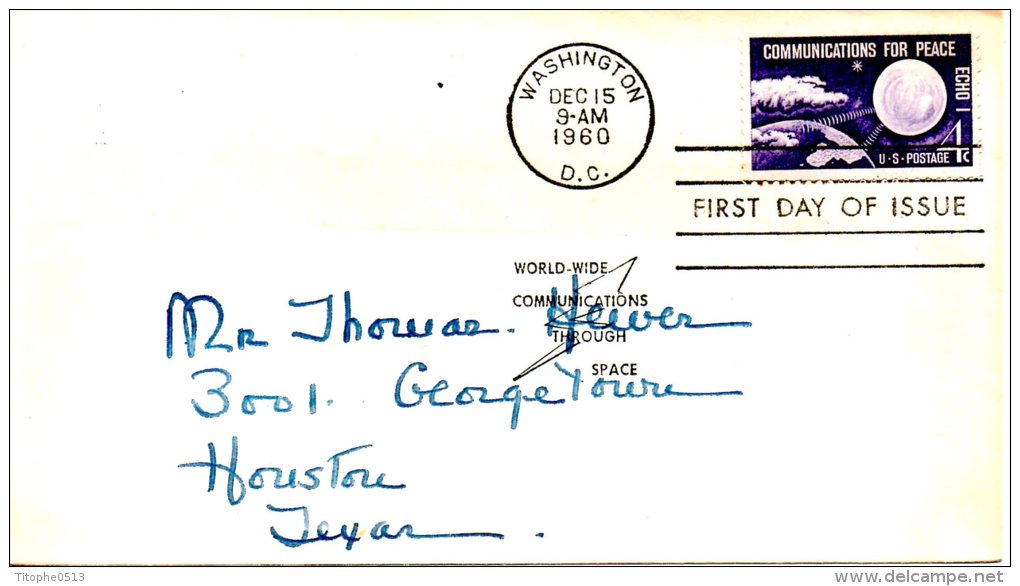 COMMUNICATIONS FOR PEACE
ECHO I
4c
U·S·POSTAGE
WASHINGTON
DEC 15
9-AM
1960
D.C.
FIRST DAY OF ISSUE
WORLD-WIDE
COMMUNICATIONS
THROUGH
SPACE
Mr Thomas.
3001. Georgetown
Houston
Texas.
Titophe0513
www.delcampe.net